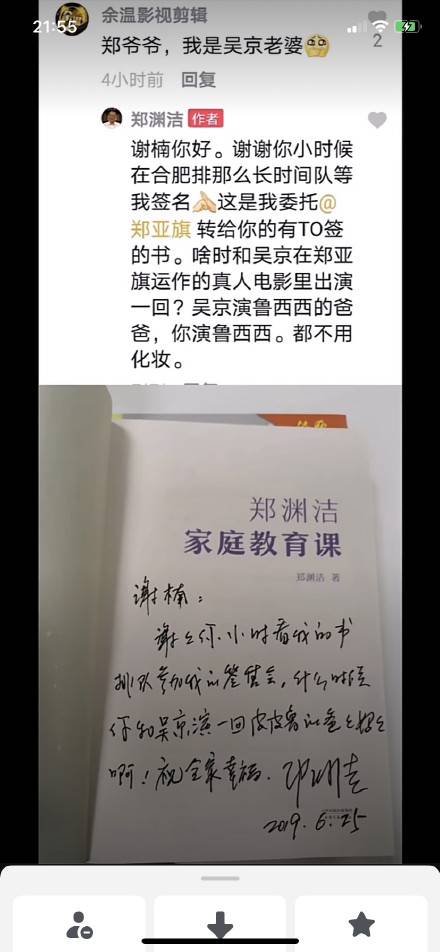 21:55
余温影视剪辑
郑爷爷，我是吴京老婆
2
4小时前 回复
郑渊洁 作者
谢楠你好。谢谢你小时候
在合肥排那么长时间队等
我签名🙏🏻这是我委托@
郑亚旗 转给你的有TO签
的书。啥时和吴京在郑亚
旗运作的真人电影里出演
一回？吴京演鲁西西的爸
爸，你演鲁西西。都不用
化妆。
郑渊洁
家庭教育课
郑渊洁 著
谢楠：
谢谢你小时看我的书
排队参加我的签售会，什么时候
你和吴京演一回皮皮鲁的爸爸妈妈
啊！祝全家幸福。郑渊洁
2019.6.25